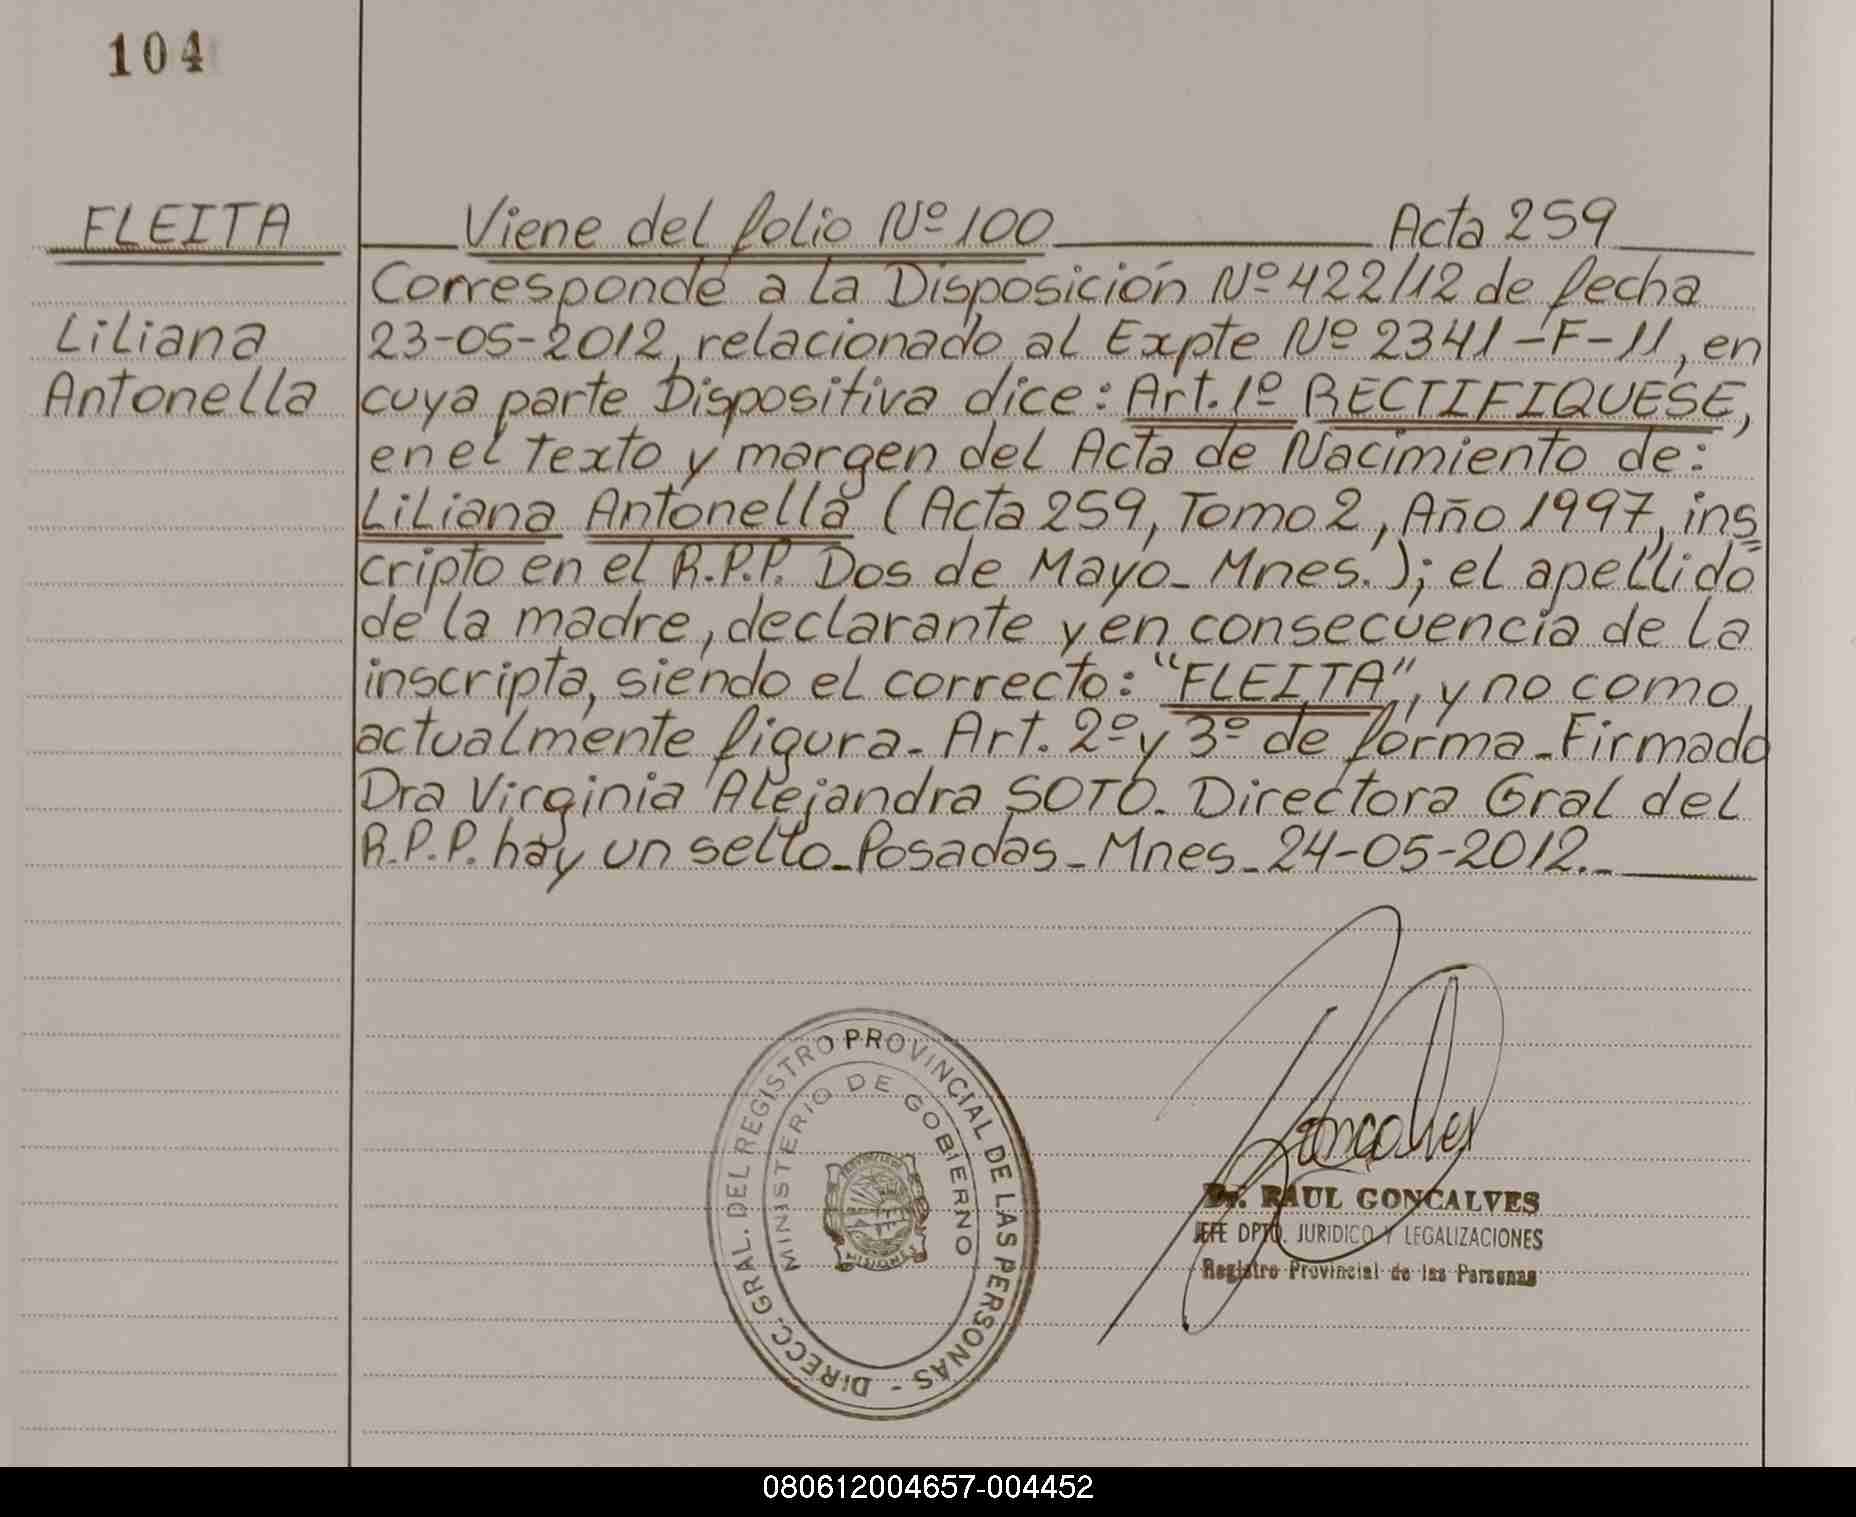 104
FLEITA
Liliana
Antonella
Viene del folio Nº 100 Acta 259
Corresponde a la Disposición Nº 422/12 de fecha
23-05-2012, relacionado al Expte Nº 2341-F-11, en
cuya parte Dispositiva dice: Art. 1º RECTIFIQUESE,
en el texto y margen del Acta de Nacimiento de:
Liliana Antonella (Acta 259, Tomo 2, Año 1997, ins=
cripto en el R.P.P. Dos de Mayo_ Mnes.); el apellido
de la madre, declarante y en consecuencia de la
inscripta, siendo el correcto: "FLEITA", y no como
actualmente figura_ Art. 2º y 3º de forma_Firmado
Dra Virginia Alejandra SOTO_ Directora Gral del
R.P.P. hay un sello_Posadas_Mnes_24-05-2012._
DIRECC. GRAL. DEL REGISTRO PROVINCIAL DE LAS PERSONAS -
MINISTERIO DE GOBIERNO
Goncalves
Dr. RAUL GONCALVES
JEFE DPTO. JURIDICO Y LEGALIZACIONES
Registro Provincial de las Personas
080612004657-004452